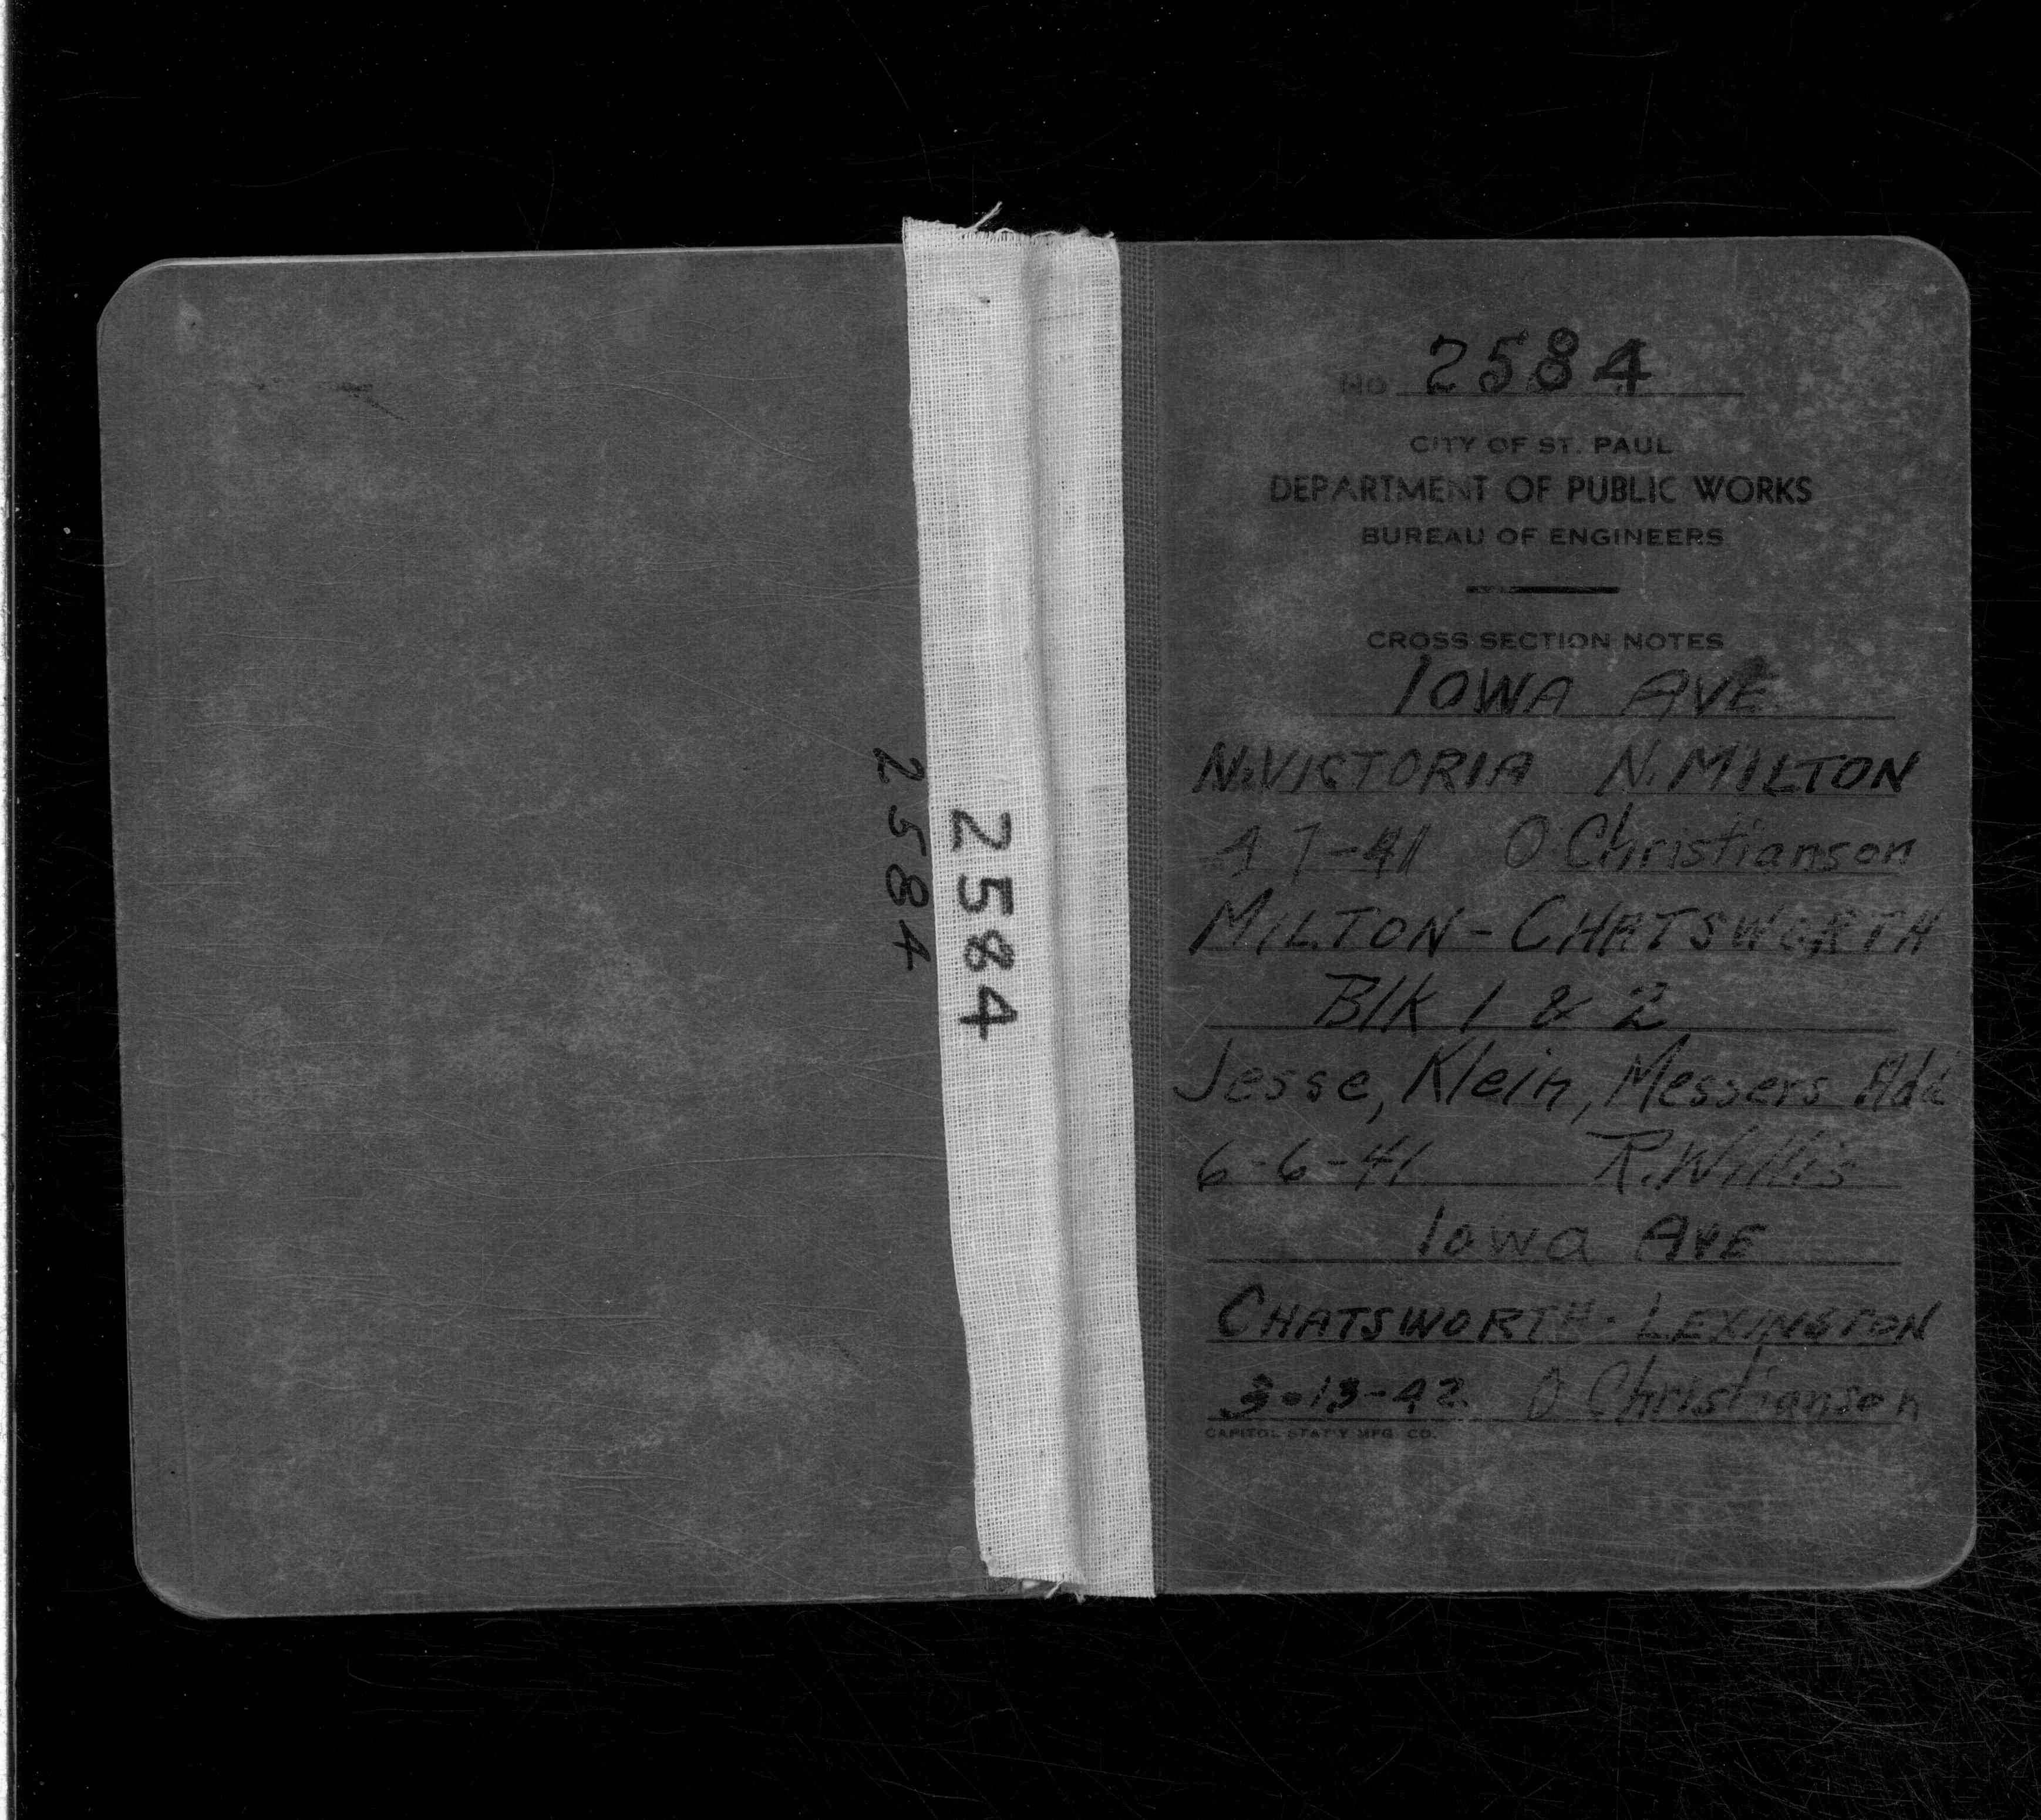 2584
2584
NO 2584
CITY OF ST. PAUL
DEPARTMENT OF PUBLIC WORKS
BUREAU OF ENGINEERS
CROSS SECTION NOTES
IOWA AVE
N. VICTORIA N. MILTON
4 7-41 O Christianson
MILTON - CHATSWORTH
Blk 1 & 2
Jesse, Klein, Messers Add
6-6-41 R. Willis
Iowa AVE
CHATSWORTH - LEXINGTON
3-13-42 O Christianson
CAPITOL STAT'Y MFG. CO.